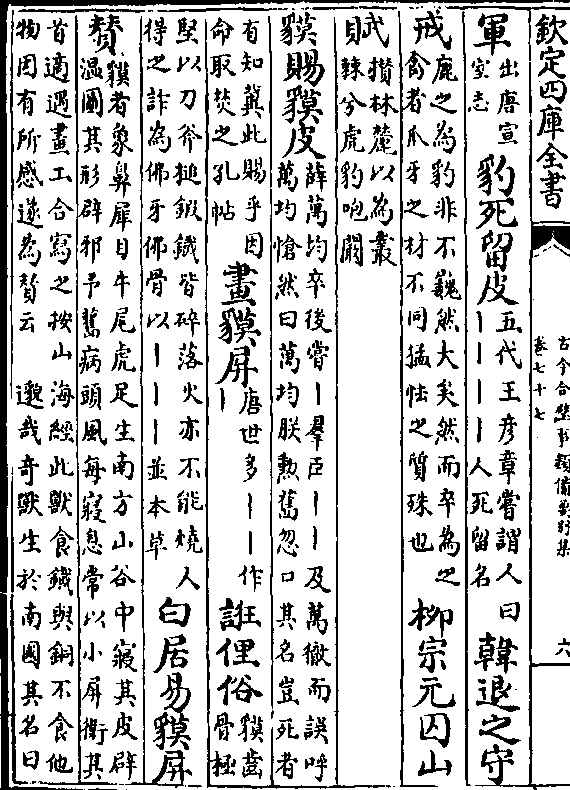 欽定四庫全書
古今合璧事類備要別集
卷七十七
六
軍
出唐宣
室志
豹死留皮
五代王彥章嘗謂人曰
丨丨丨丨人死留名
韓退之守
戒
鹿之為豹非不巍然大矣然而卒為之
禽者爪牙之材不同猛怯之質殊也
柳宗元囚山
賦
攢林麓以為叢
棘兮虎豹咆闞
貘賜貘皮
薛萬均卒後嘗丨羣臣丨丨及萬徹而誤呼
萬均愴然曰萬均朕勲舊忽口其名豈死者
有知冀此賜乎因
命取焚之孔帖
畫貘屏
唐世多丨丨作
丨
誑俚俗
貘齒
骨極
堅以刀斧搥鍛鐵皆碎落火亦不能燒人
得之詐為佛牙佛骨以丨丨丨並本草
白居易貘屏
贊
貘者象鼻犀目牛尾虎足生南方山谷中寢其皮辟
温圖其形辟邪予舊病頭風每寢息常以小屏衛其
首適遇畫工合寫之按山海經此獸食鐵與銅不食他
物因有所感遂為贊云 邈哉奇獸生於南國其名曰